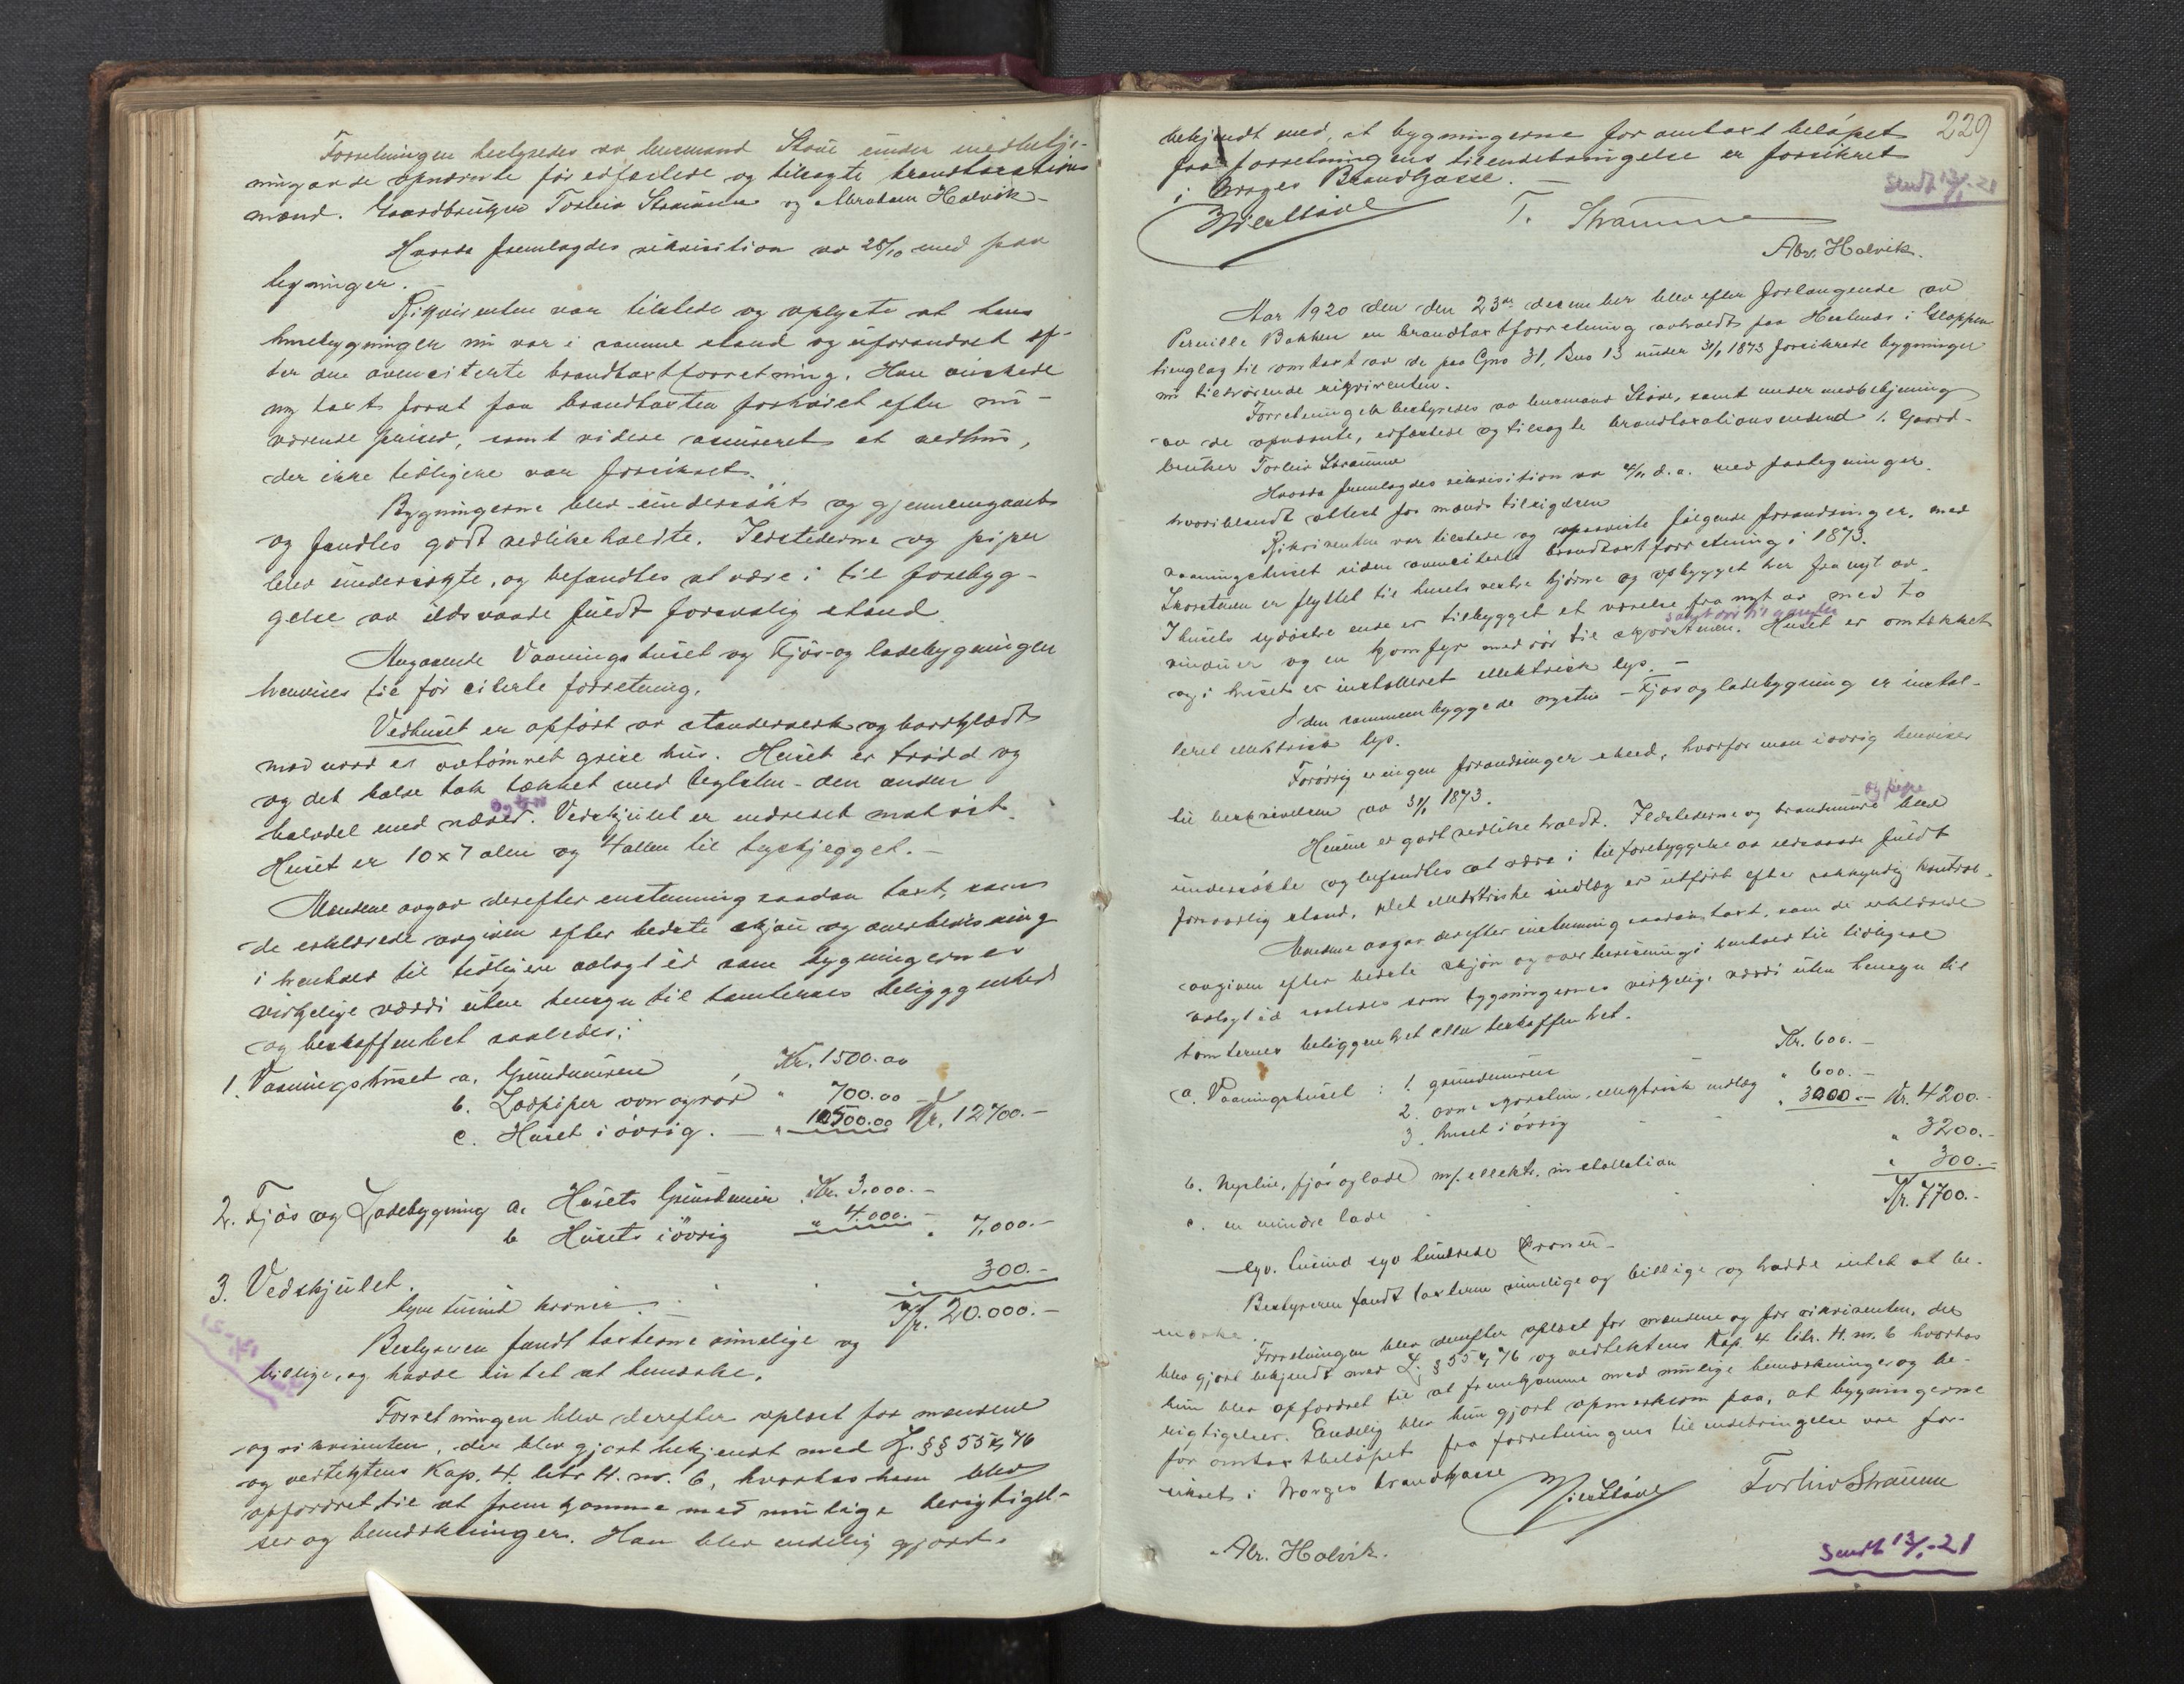 Forretningen bestyredes av lensmand Støve under medbetje-
ning av de opnævnte før edfæstede og tilsagte brandtaxations
mænd. Gaardbruker Torleiv Straume og Abraham Holvik
Hvorda fremlagdes rekvisition av 25/10 med paa
tegninger.
Rekvirenten var tilstede og oplyste at hans
husebygninger nu var i samme stand og uforandret ef-
ter den ovenciterte brandtaxtforretning. Han ønskede
ny taxt forat faa brandtaxten forhøiet efter nu-
værende priser, samt videre assureret et vedhus,
der ikke tidligere var forsikret.
Bygningerne blev undersøkt og gjennemgaat
og fandtes godt vedlikeholdte. Ildstederne og piper
blev undersøgte, og befandtes at være i til forebyg-
gelse av ildsvaade fuldt forsvarlig stand.
Angaaende Vaaningshuset og Fjøs- og ladebygningen
henvises til før citerte forretning.
Vedhuset er opført av standerverk og bordklædt
mod nord er optømret grise hus. Huset er trodd og
og det halve tak tækket med teglsten - den anden
halvdel med næver. Vedskjulet er indredet mat.
og torv
Huset er 10 x 7 alen og 4 allen til tagskjegget.
Mændene avgav derefter enstemmig saadan taxt, som
de erklærede avgiven efter bedste skjøn og overbevisning
i henhold til tidligere avlagt ed som bygningernes
virkelige værdi uten hensyn til tomternes beliggenhed
og beskaffenhet saaledes:
1. Vaaningshuset a. Grundmuren Kr. 1500.00
b. Lodpiper ovn og rør " 700.00
c. Huset i øvrig. " 10500.00 Kr. 12700.-
2. Fjøs og Ladebygning a. Husets Grundmur Kr. 3.000.-
b Husets iøvrig " 4.000.- " 7.000.-
3. Vedskjulet. " 300.-
tyve tusind kroner. Kr. 20.000.-
Bestyreren fandt taxterne rimelige og
billige, og havde intet at bemærke.
Forretningen blev derefter oplæst for mændene
og rekvirenten, der blev gjort bekjendt med L. §§ 55 og 76
og vedtektens Kap. 4. litr H. nr. 6, hvorhos han blev
opfordret til at fremkomme med mulige berigtigel-
ser og bemerkninger. Han blev endelig gjort
229
bekjendt med, at bygningerne for omtaxtbeløpet
fra forretningens tilendebringelse er forsikret
i Norges Brandkasse.
Sendt 13/1-21
T. Straume
Abr. Holvik.
Aar 1920 den den 23de desember blev efter forlangende av
Pernille Bakken en brandtaxtforretning avholdt paa Hestenes i Gloppen
tinglag til omtaxt av de paa Gno 31, Bno 13 under 31/1 1873 forsikrede bygninger
nu tilhørende rekvirenten.
Forretningen bestyredes av lensmand Støve, samt under medbetjening
av de opnævnte, edfæstede og tilsagte brandtaxationsmænd 1. Gaard-
bruker Torleiv Straume
Hvorda fremlagdes rekvisition av d.a. med paategninger,
hvoriblandt attest for mænds tilsigelsen
Rekvirenten var tilstede og opgav følgende forandringer, med
vaaningshuset siden ovenciterte brandtaxtforretning i 1873.
Skorstenen er flyttet til husets vestre hjørne og opbygget her fra nyt av.
I husets sydøstre ende er tilbygget et værelse fra nyt av med to
vinduer og en komfyr med rør til skorstenen. Huset er omtækket
og i huset er installeret elektrisk lys. -
I den sammenbyggede nystue - Fjøs og ladebygning er instal-
leret elektrisk lys.
Forøvrig er ingen forandringer skeed, hvorfor man iøvrig henviser
til beskrivelsen av 31/1 1873.
og pipe
Husene er godt vedlikeholdt. Ildstederne og brandmure blev
undersøkte og befandtes at være i til forebyggelse av ildsvaade fuldt
forsvarlig stand. Det elektriske indlæg er utført efter sakkyndig kontrol.
Mændene avgav derefter enstemmig saadan taxt, som de erklærede
avgiven efter bedste skjøn og overbevisning i henhold til tidligere
avlagt ed saaledes som bygningernes virkelige værdi uten hensyn til
tomternes beliggenhet eller beskaffenhet.
a. Vaaningshuset: 1. grundmuren Kr. 600.-
2. ovne skorsten, elektrisk indlæg " 600.-
3. huset iøvrig " 3000.- Kr. 4200.-
b. Nystue, fjøs og lade m/ elektr. installation " 3200.-
c. en mindre lade " 300.-
Kr. 7700.-
Syv tusind syv hundrede kroner
Bestyreren fandt taxterne rimelige og billige og hadde intet at be-
merke.
Forretningen blev derefter oplæst for mændene og for rekvirenten, der
blev gjort bekjendt med L. § 55 og 76 og vedtektens Kap 4. litr. H. nr. 6 hvorhos
hun blev opfordret til at fremkomme med mulige bemerkninger og be-
rigtigelser. Endelig blev hun gjort opmerksom paa, at bygningerne
for omtaxtbeløpet fra forretningens tilendebringelse var for-
sikret i Norges brandkasse
Torleiv Straume
Abr. Holvik.
Sendt 13/1-21